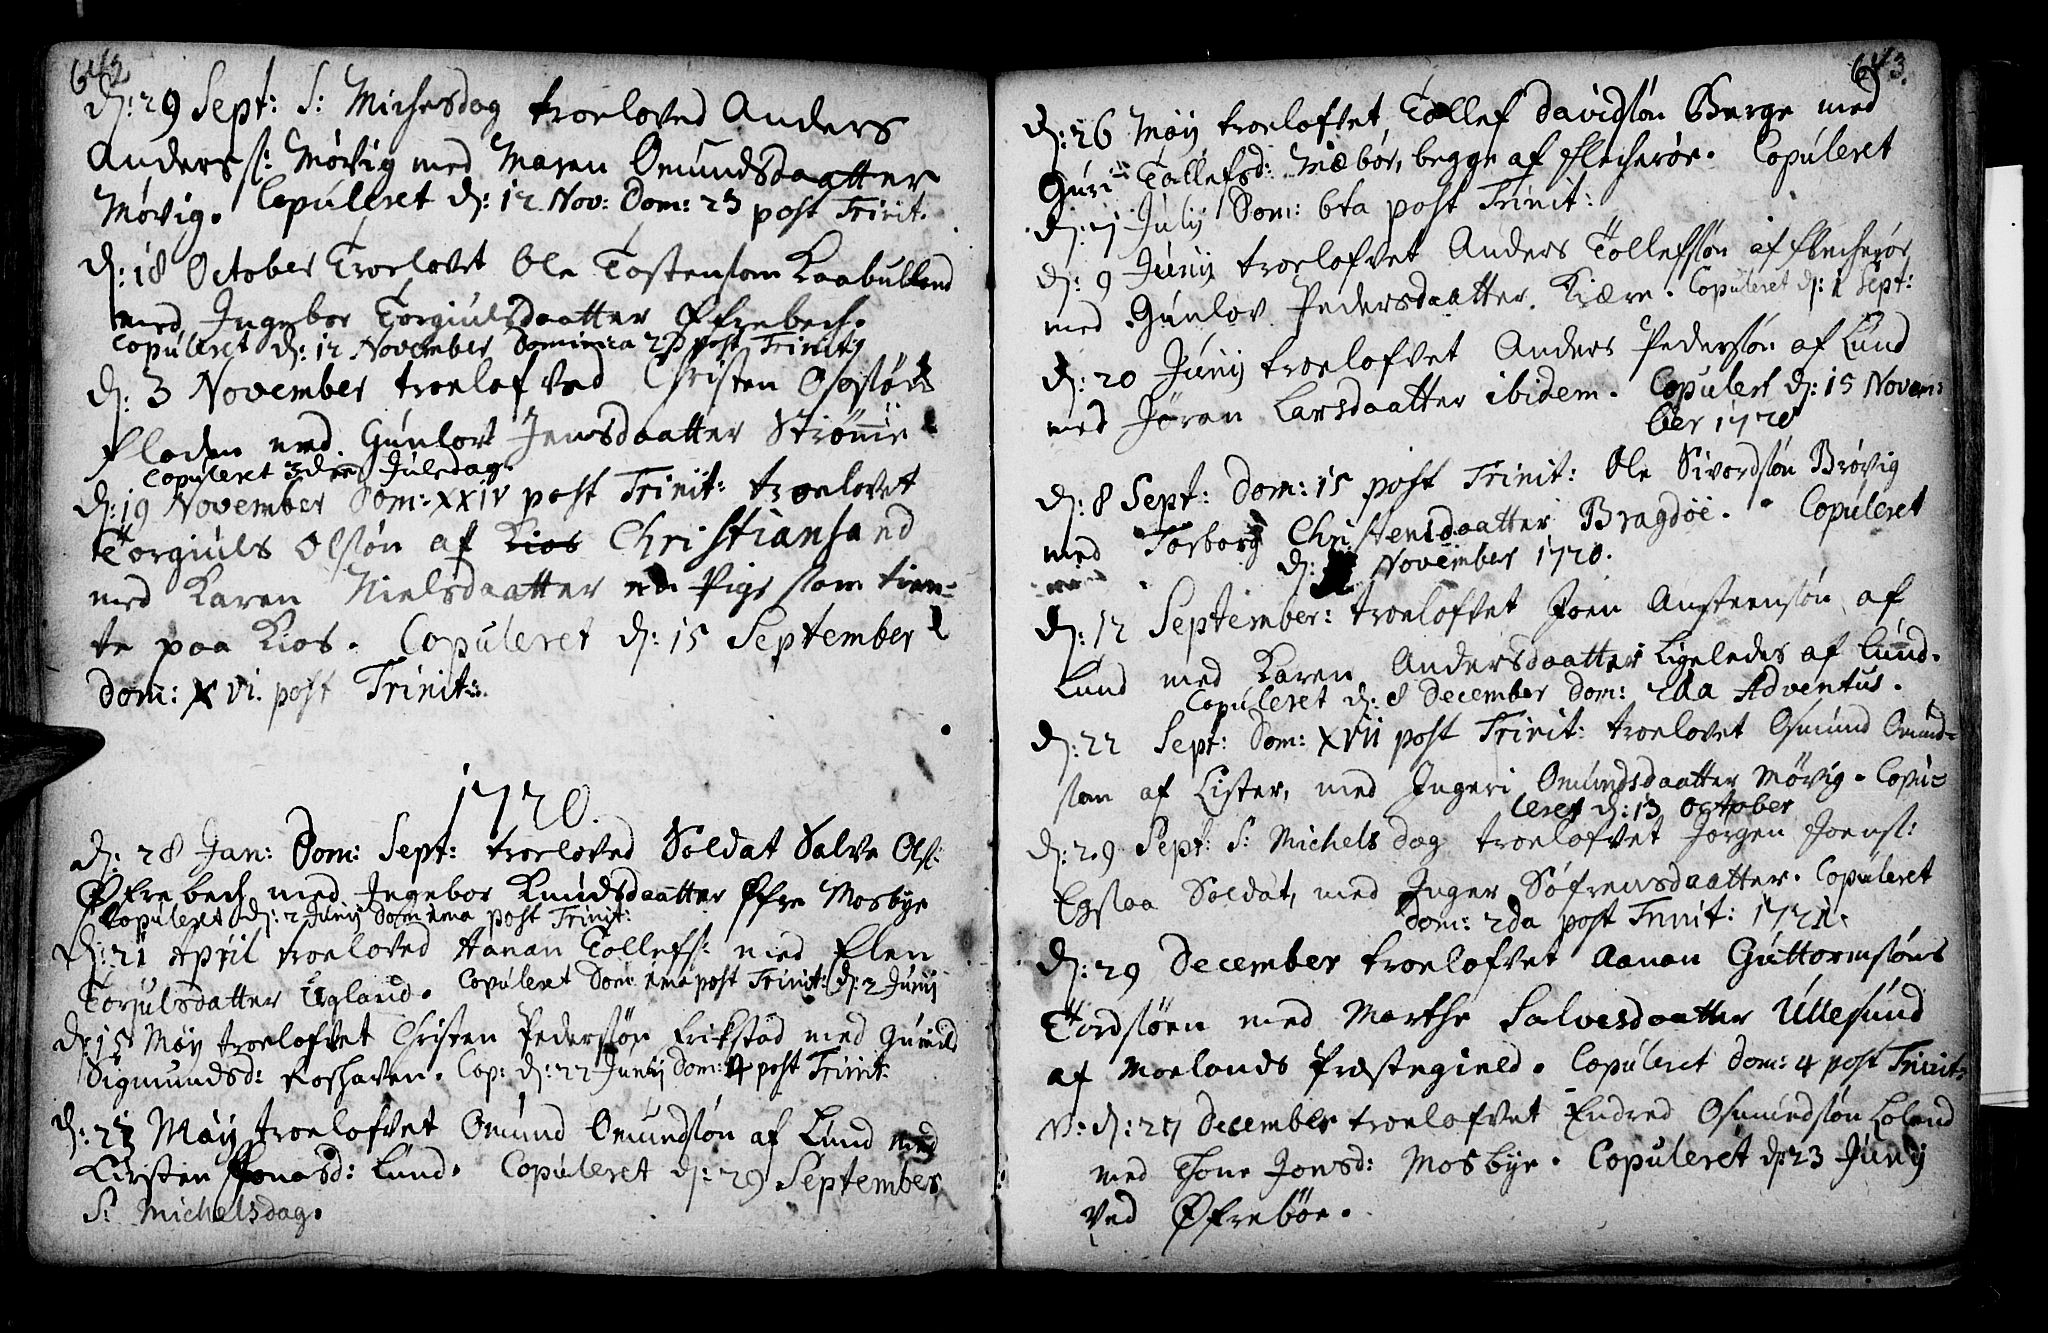 642.
d: 29 Sept: S: Michelsdag troeloved Anders
Anders s: Møvig med Maren Omundsdaatter
Møvig. Copuleret d: 12 Nov: Dom: 23 post Trinit.
d: 18 October Troelovet Ole Tostensøn Kaabulland
med Ingebor Torgiulsdaatter Øfrebech.
Copuleret d: 12 November Dominica 23 post Trinit:
d: 3 November troelofved Christen
Floden med Gunlov Jensdaatter Strømme
Copuleret 3die Juledag.
d: 19 November Dom: xxiv post Trinit: troelovet
Torgiuls Olsøn af Kios Christiansand
med Karen Nielsdaatter en Pige som tien-
te paa Kios. Copuleret d: 15 September
Dom: xvi. post Trinit:
1720.
d: 28 Jan: Dom: Sept: troeloved Soldat Salve Ols:
Øfrebech med Ingebor Knudsdaatter Øfre Mosbye
Copuleret d: 2 Junij Dom: 1ma post Trinit:
d: 21 April troeloved Aanan Tollefs: med Elen
Torjulsdatter Ugland. Copuleret Dom: 1ma post Trinit: d: 2 Junij
d: 15 Maij troelofvet Christen Pedersøn Erikstad med Gunild
Sigmundsd: Roshaven. Cop: d: 22 Junij Dom: 4 post Trinit:
d: 21 Maij troelofvet Omund Omundsøn af Lund med
Kirsten Jonasd: Lund. Copuleret d: 29 September
S: Michelsdag.
643.
d: 26 Maij troelofvet Tollef Davidsøn Berge med
Guri Tollefsd: Mæbøe, begge af Flecherøe. Copuleret
d: 7 Julij Dom: 6ta post Trinit:
d: 9 Junij troelofvet Anders Tollefsøn af Flecherøe
med Gunlov Pedersdaatter Kiære. Copuleret d: 1 Sept:
d: 20 Junij troelofvet Anders Pedersøn af Lund
med Jøran Larsdaatter ibidem. Copuleret d: 15 Novem:
ber 1720
d: 8 Sept: Dom: 15 post Trinit: Ole Sivordsøn Brøvig
med Torborg Christensdaatter Bragdøe. Copuleret
d: November 1720.
d: 12 September: troelofvet Joen Austeensøn af
Lund med Karen Andersdaatter ligeledes af Lund.
Copuleret d: 8 December Dom: 2da Adventus.
d: 22 Sept: Dom: XVII post Trinit: troelovet Osmund Omund-
søn af Lister, med Ingeri Omundsdaatter Møvig. Copu-
leret d: 13 October
d: 29 Sept: S: Michels dag troelofvet Jørgen Joens:
Egslaa Soldat, med Inger Søfrensdaatter. Copuleret
Dom: 2da post Trinit: 1721.
d: 29 December troelofvet Aanon Guttormsøns
Tordsøen med Marthe Salvesdaatter Ullesund
af Moelands Præstegield. Copuleret Dom: 4 post Trinit:
N: d: 27 December troelofvet Endred Osmundsøn Loland
med Thone Jonsd: Mosbye. Copuleret d: 23 Junij
ved Øfrebøe.